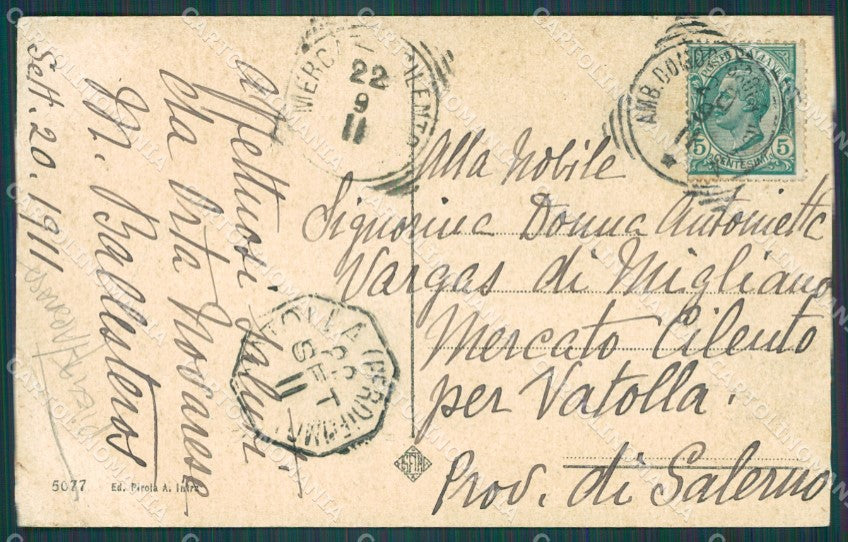 Affettuosi saluti
da Orta Novarese
M. Ballesteros
Sett. 20. 1911
Alla Nobile
Signorina Donna Antonietta
Vargas di Migliano
Mercato Cilento
per Vatolla.
Prov. di Salerno
MERCATO CILENTO
22
9
11
AMB. DOMODOS
POSTE ITALIANE
5 5
CENTESIMI
VATOLLA (PERDIFUMO)
SET
11
5077 Ed. Pirola A. Intra
CARTOLINOMANIA